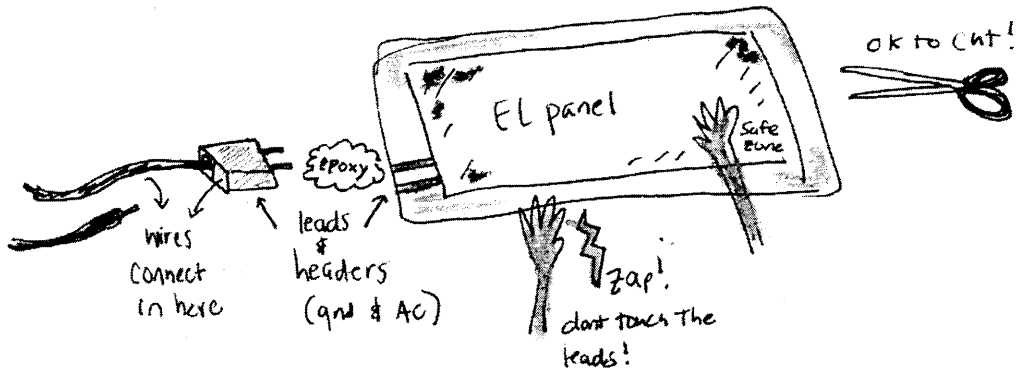 ok to cut!
EL panel
safe
zone
epoxy
wires
connect
in here
leads
&
headers
(gnd & AC)
zap!
dont touch the
leads!